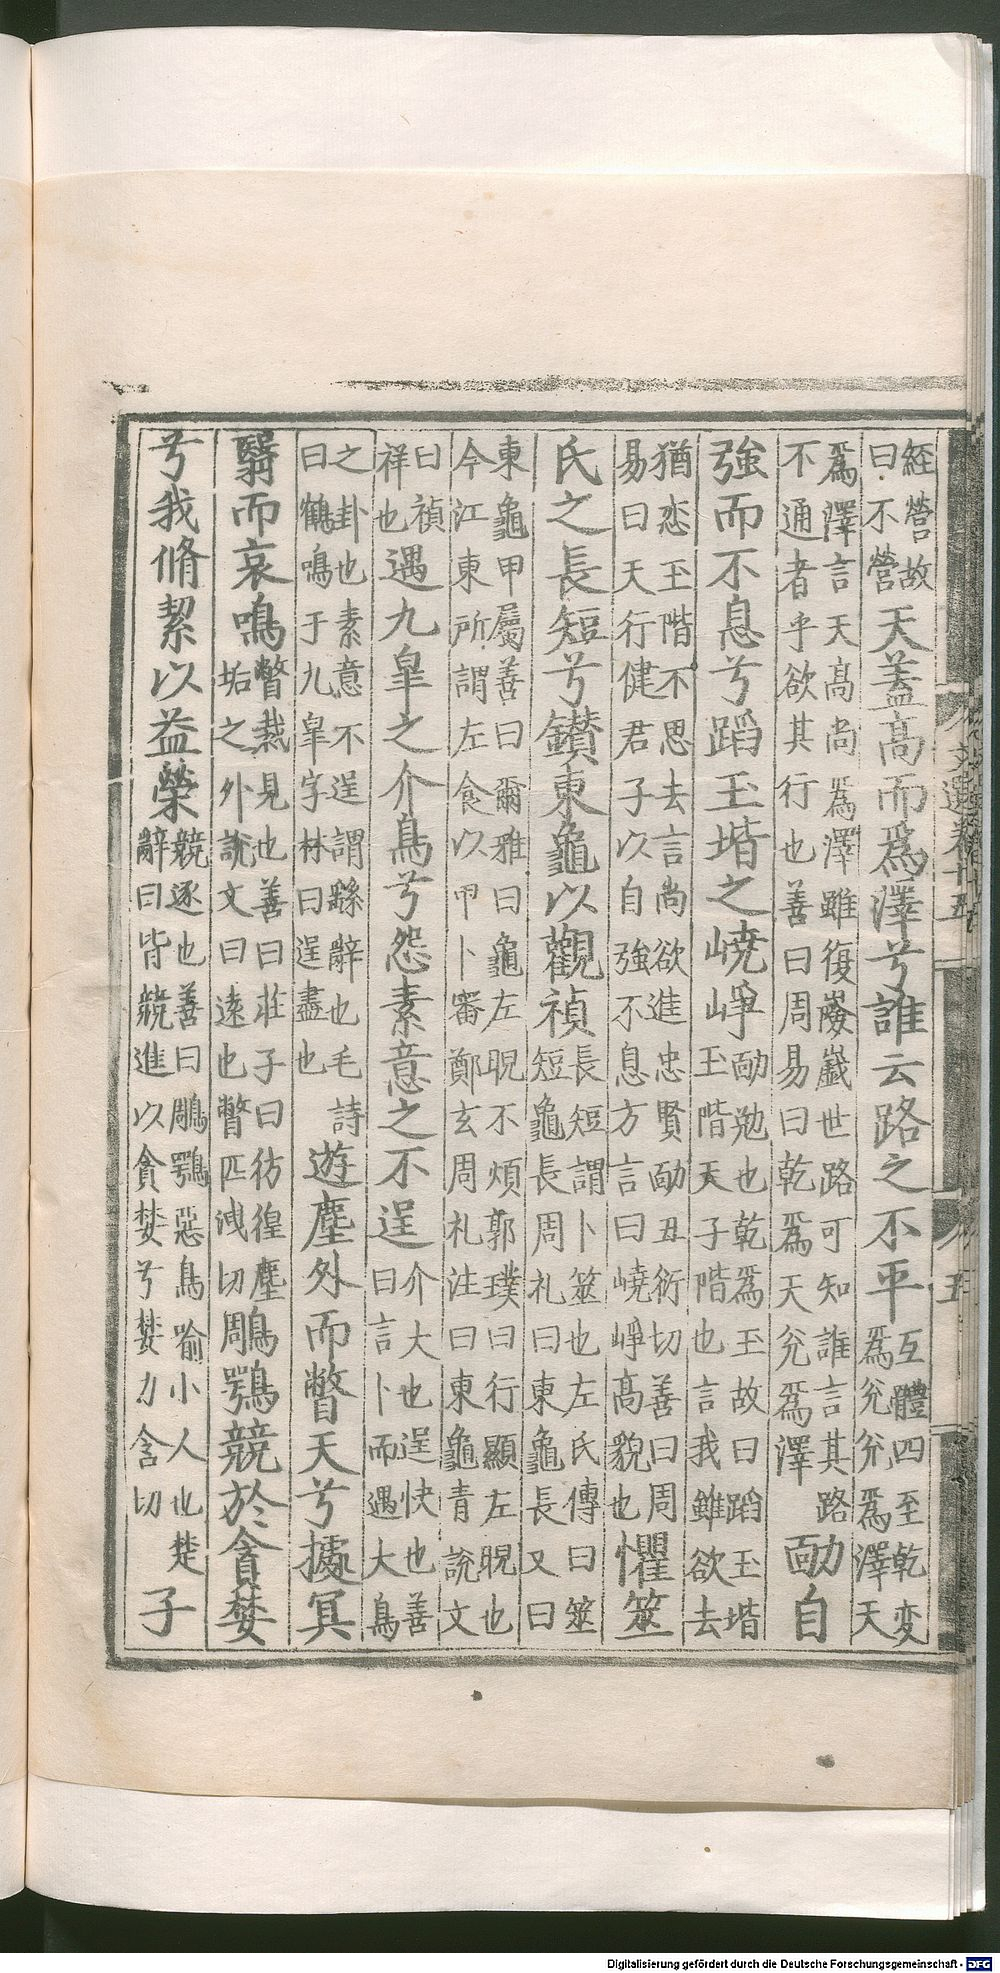 經營故
曰不營
天蓋高而爲澤兮誰云路之不平
互體四至乾変
爲兊兊爲澤天
爲澤言天髙尚爲澤雖復嶮巇世路可知誰言其路
不通者乎欲其行也善曰周易曰乾爲天兊爲澤
勔自
強而不息兮蹈玉堦之嶢崢
勔勉也乾爲玉故曰蹈玉堦
玉階天子階也言我雖欲去
猶恋玉階不思去言尚欲進忠賢勔丑衍切善曰周
易曰天行健君子以自強不息方言曰嶢崢髙貌也
懼筮
氏之長短兮鑚東龜以觀禎
長短謂卜筮也左氏傳曰筮
短龜長周礼曰東龜長又曰
東龜甲屬善曰爾雅曰龜左睨不煩郭璞曰行顯左睨也
今江東所謂左食以甲卜審鄭玄周礼注曰東龜青說文
曰禎
祥也
遇九皐之介鳥兮怨素意之不逞
介大也逞快也善
曰言卜而遇大鳥
之卦也素意不逞謂繇辭也毛詩
曰鶴鳴于九皐字林曰逞盡也
遊塵外而瞥天兮據冥
翳而哀鳴
瞥裁見也善曰莊子曰彷徨塵
垢之外說文曰遠也瞥匹洩切
鵰鶚競於貪婪
兮我脩絜以益榮
競逐也善曰鵰鶚惡鳥喻小人也楚
辭曰皆競進以貪婪兮婪力含切
子
文選卷十五
五
Digitalisierung gefördert durch die Deutsche Forschungsgemeinschaft - DFG